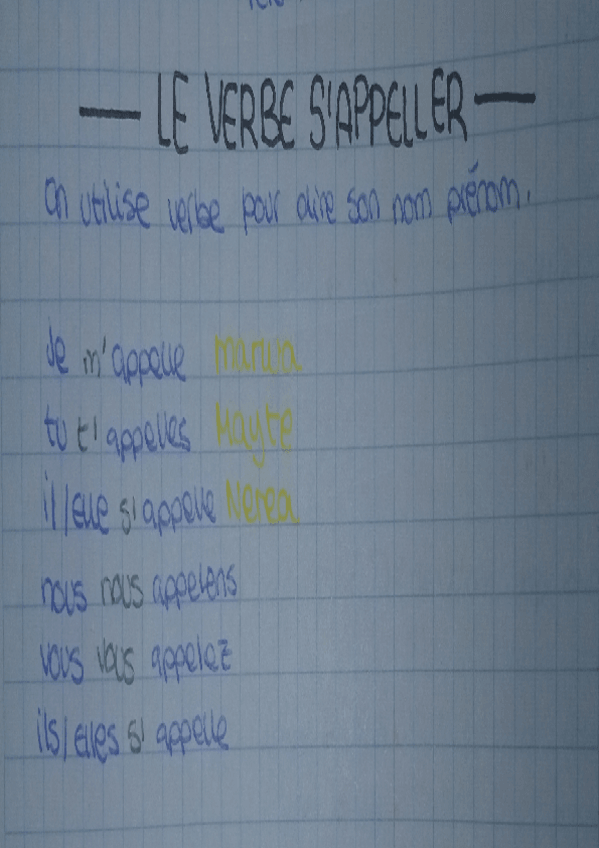 — LE VERBE S'APPELLER —
On utilise verbe pour dire son nom prénom.
Je m'appelle Marwa
tu t'appelles Mayte
il/elle s'appelle Nerea
nous nous appelons
vous vous appelez
ils/elles s'appelle